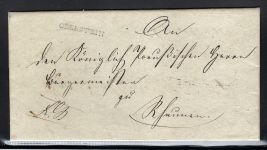 OBERSTEIN
An
den Königlich Preußischen Herrn
Bürgermeister
zu
Rhaunen